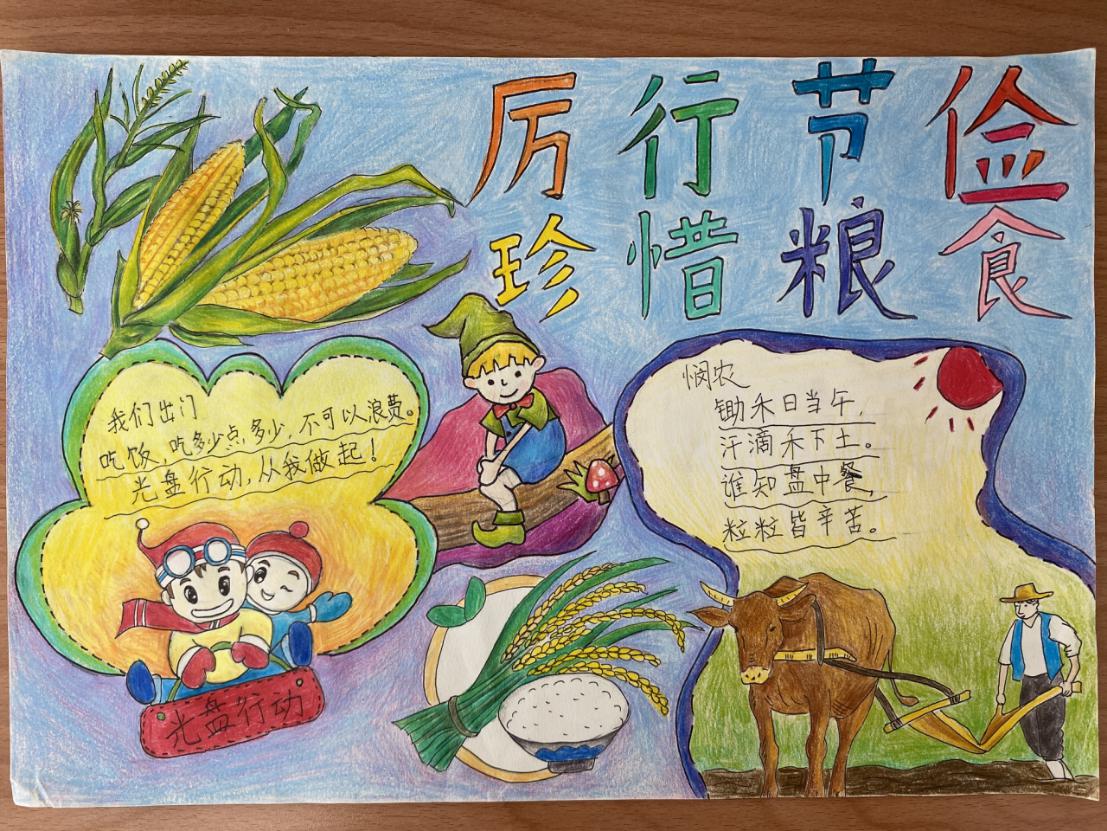 厉行节俭
珍惜粮食
我们出门
吃饭,吃多少点多少,不可以浪费。
光盘行动,从我做起!
光盘行动
悯农
锄禾日当午,
汗滴禾下土。
谁知盘中餐,
粒粒皆辛苦。